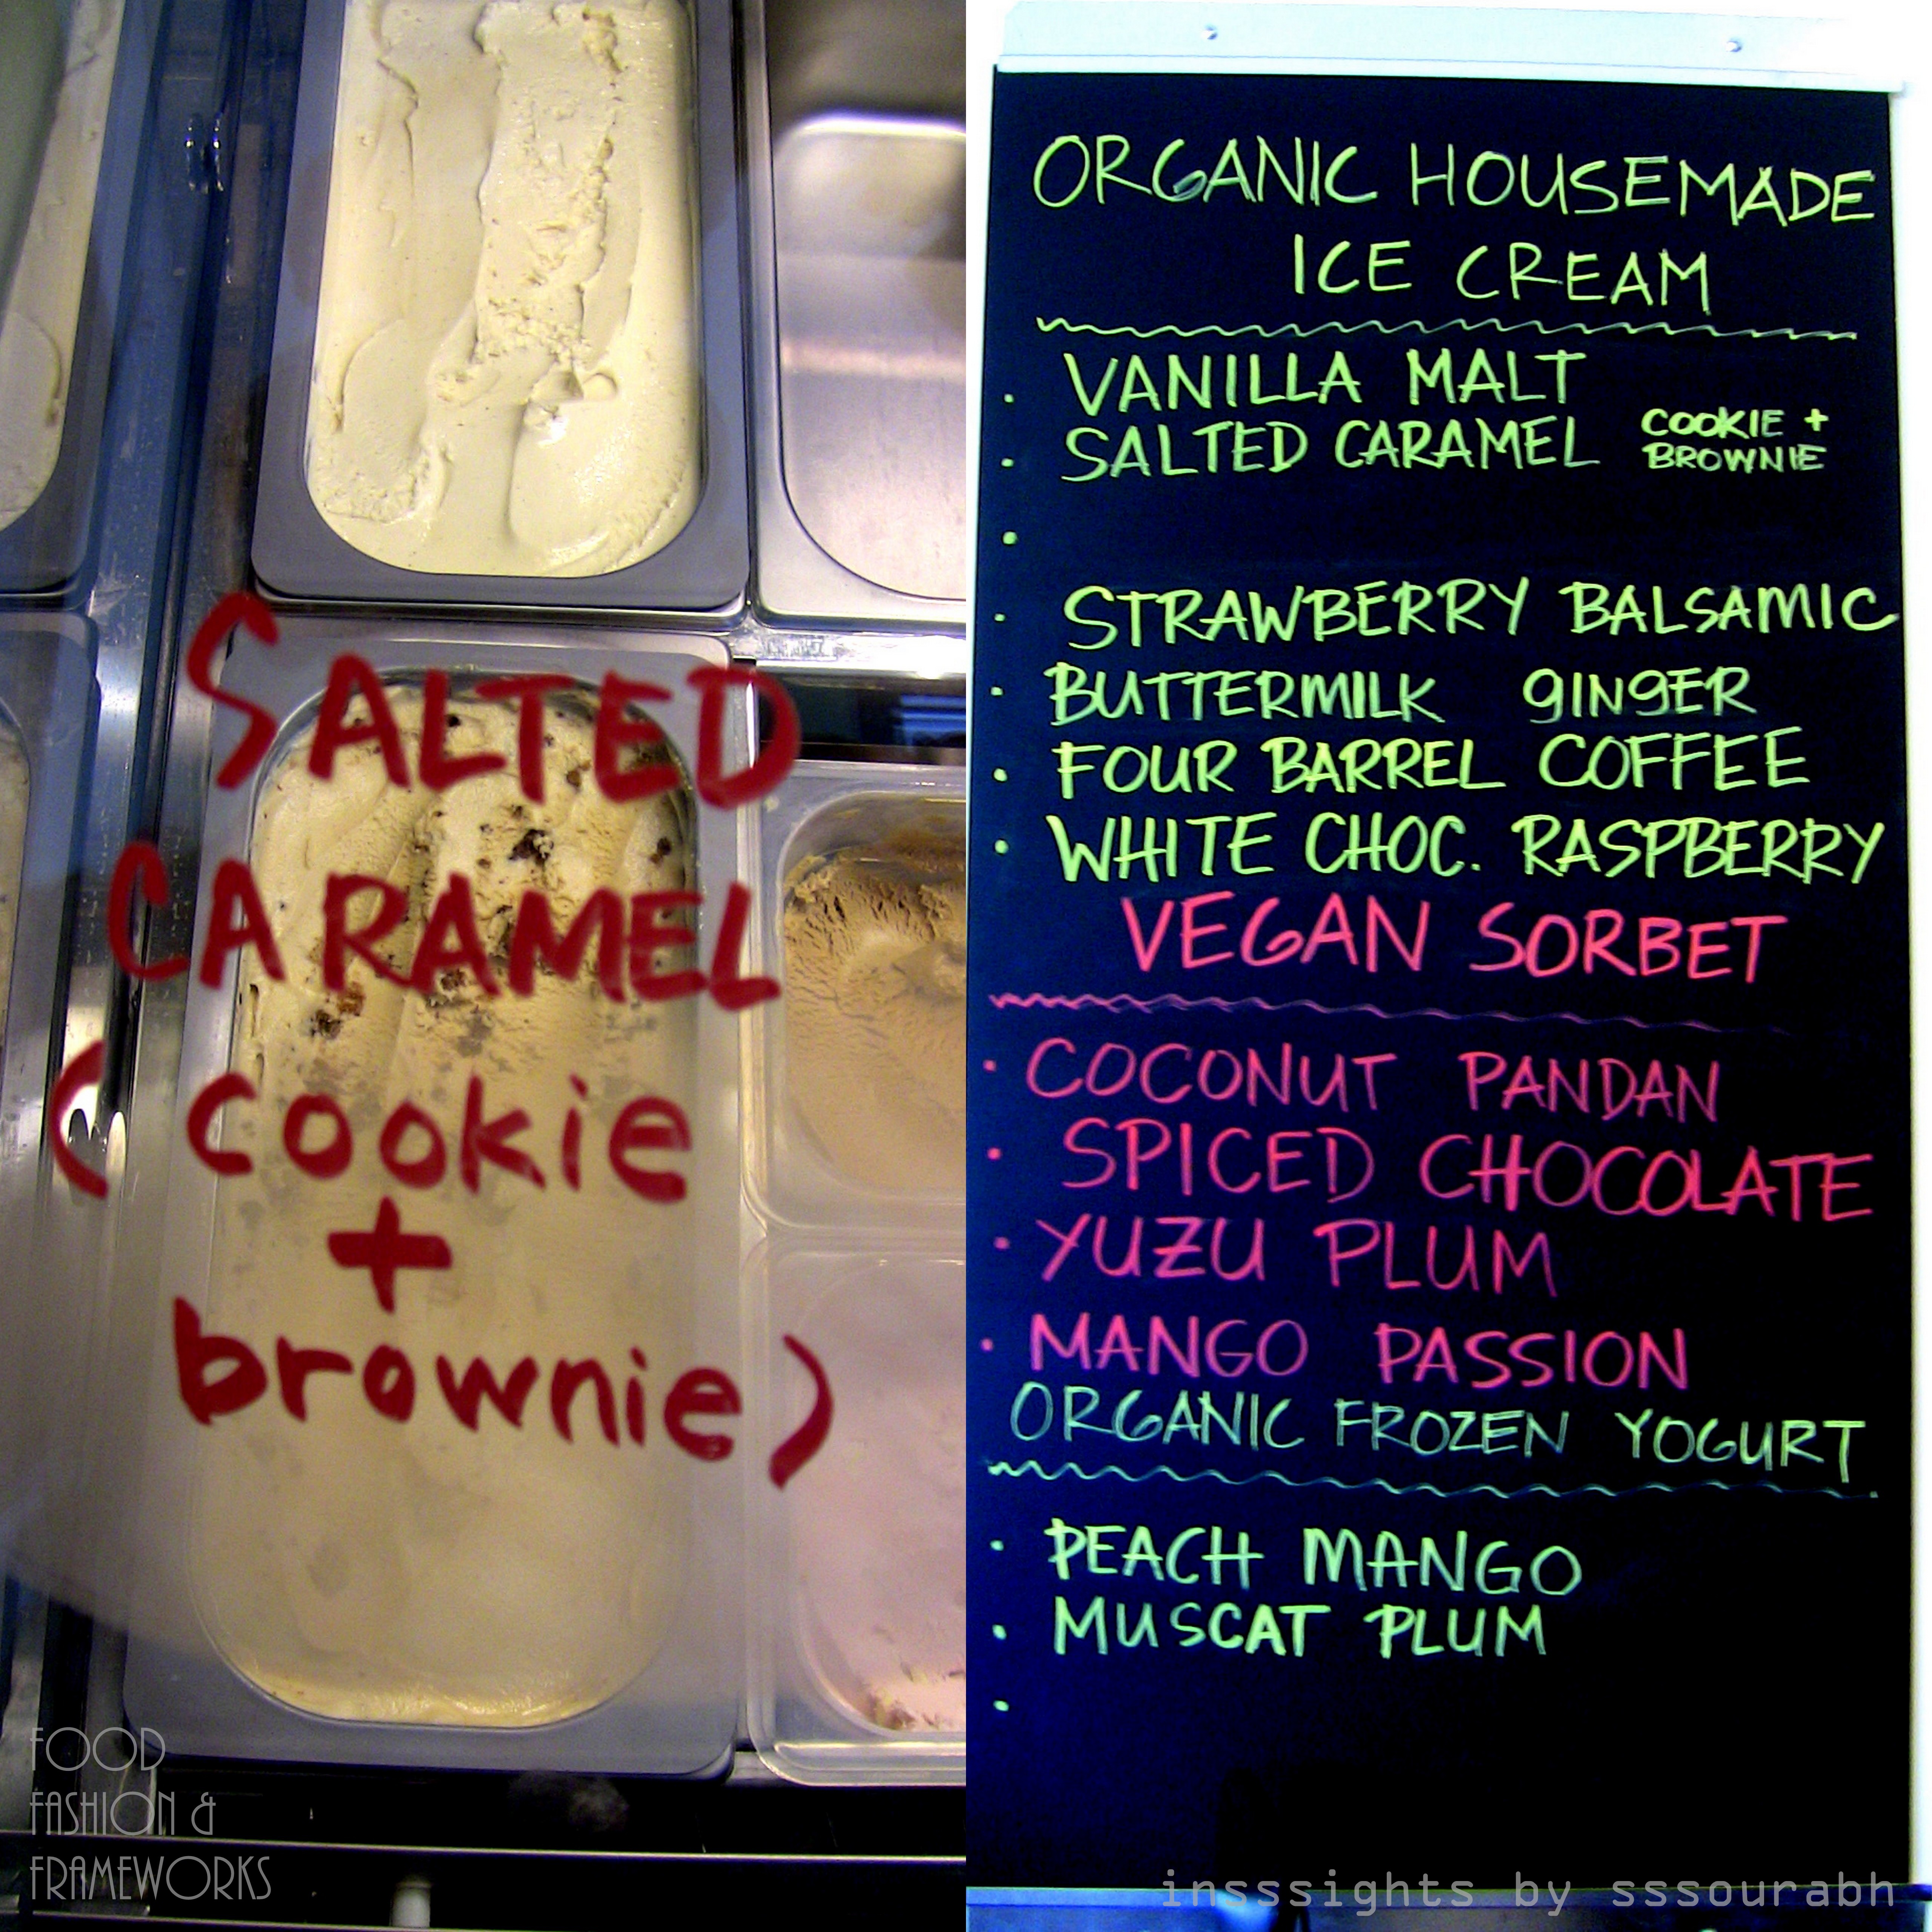 SALTED
CARAMEL
(cookie
+
brownie)
FOOD
FASHION &
FRAMEWORKS
ORGANIC HOUSEMADE
ICE CREAM
• VANILLA MALT
• SALTED CARAMEL COOKIE +
BROWNIE
•
• STRAWBERRY BALSAMIC
• BUTTERMILK GINGER
• FOUR BARREL COFFEE
• WHITE CHOC. RASPBERRY
VEGAN SORBET
• COCONUT PANDAN
• SPICED CHOCOLATE
• YUZU PLUM
• MANGO PASSION
ORGANIC FROZEN YOGURT
• PEACH MANGO
• MUSCAT PLUM
•
insssights by sssourabh